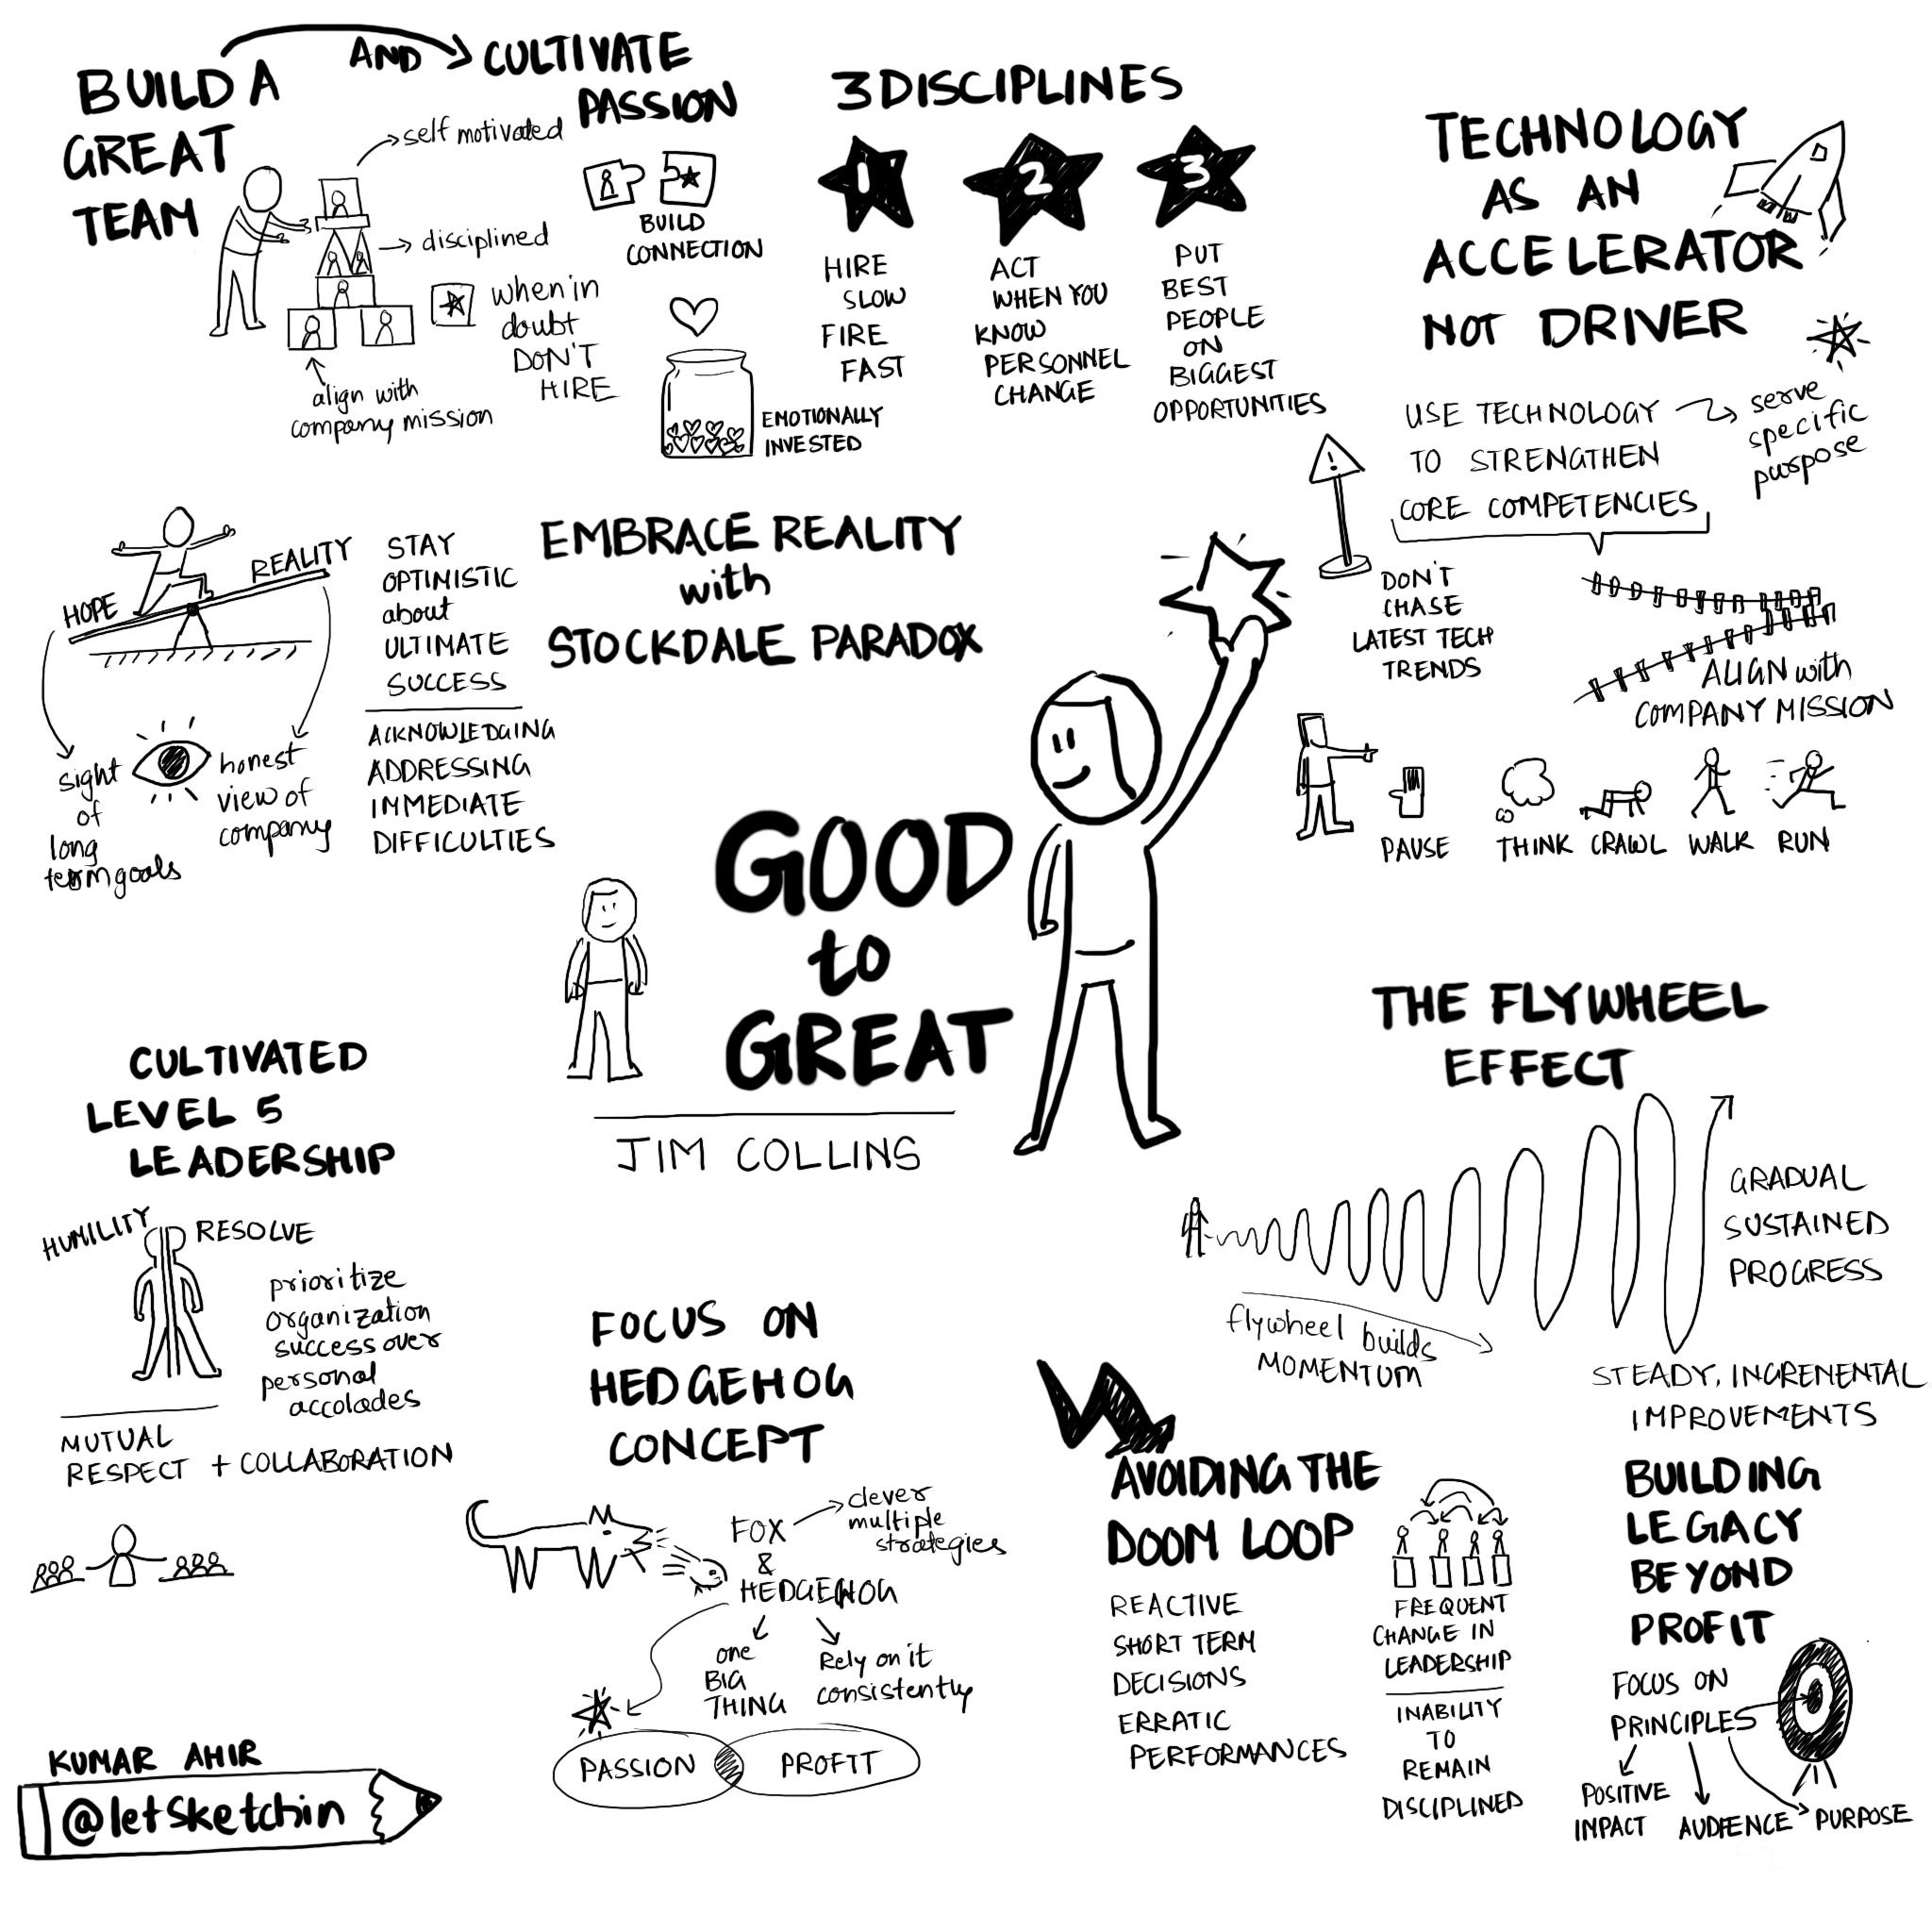 BUILD A
GREAT
TEAM
AND
CULTIVATE
PASSION
self motivated
disciplined
when in
doubt
DON'T
HIRE
align with
company mission
BUILD
CONNECTION
EMOTIONALLY
INVESTED
3 DISCIPLINES
1
HIRE
SLOW
FIRE
FAST
2
ACT
WHEN YOU
KNOW
PERSONNEL
CHANGE
3
PUT
BEST
PEOPLE
ON
BIGGEST
OPPORTUNITIES
TECHNOLOGY
AS AN
ACCELERATOR
NOT DRIVER
USE TECHNOLOGY
TO STRENGTHEN
CORE COMPETENCIES
serve
specific
purpose
!
DON'T
CHASE
LATEST TECH
TRENDS
ALIGN with
COMPANY MISSION
PAUSE
THINK
CRAWL
WALK
RUN
HOPE
REALITY
STAY
OPTIMISTIC
about
ULTIMATE
SUCCESS
ACKNOWLEDGING
ADDRESSING
IMMEDIATE
DIFFICULTIES
sight
of
long
term goals
honest
view of
company
EMBRACE REALITY
with
STOCKDALE PARADOX
GOOD
to
GREAT
JIM COLLINS
CULTIVATED
LEVEL 5
LEADERSHIP
HUMILITY
RESOLVE
prioritize
organization
success over
personal
accolades
MUTUAL
RESPECT + COLLABORATION
FOCUS ON
HEDGEHOG
CONCEPT
FOX
&
HEDGEHOG
clever
multiple
strategies
one
BIG
THING
Rely on it
consistently
PASSION
PROFIT
THE FLYWHEEL
EFFECT
GRADUAL
SUSTAINED
PROGRESS
flywheel builds
MOMENTUM
STEADY, INCREMENTAL
IMPROVEMENTS
AVOIDING THE
DOOM LOOP
REACTIVE
SHORT TERM
DECISIONS
ERRATIC
PERFORMANCES
FREQUENT
CHANGE IN
LEADERSHIP
INABILITY
TO
REMAIN
DISCIPLINED
BUILDING
LEGACY
BEYOND
PROFIT
FOCUS ON
PRINCIPLES
POSITIVE
IMPACT
AUDIENCE
PURPOSE
KUMAR AHIR
@letsketchin